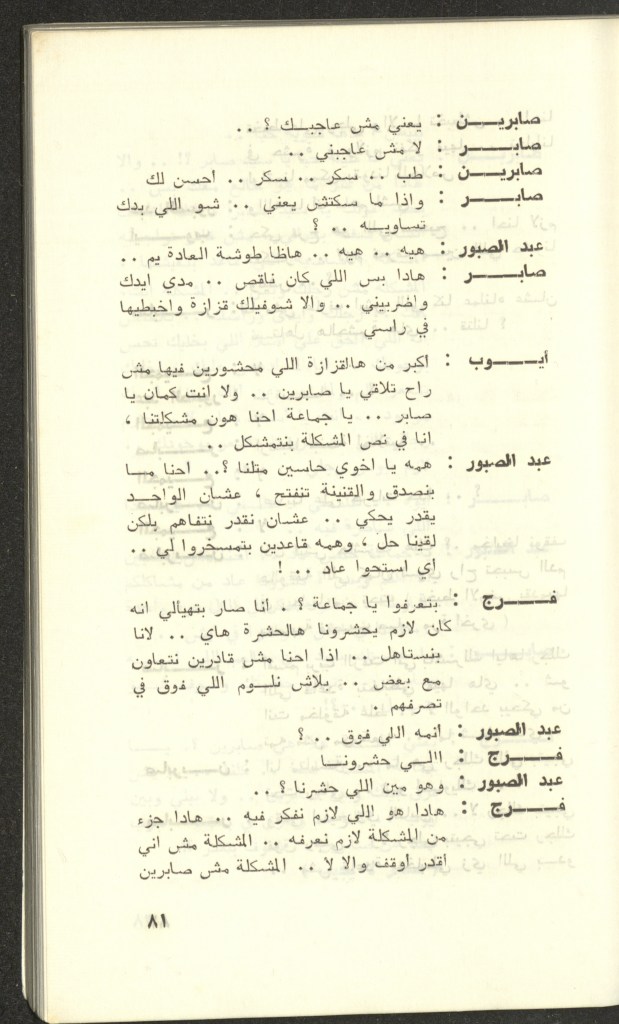 صابريــــن : يعني مش عاجبــك ؟ ..
صابــــــر : لا مش عاجبني ..
صابريــــن : طب .. سكر .. سكر .. احسن لك
صابــــــر : واذا ما سكتش يعني .. شو اللي بدك
تساويــه .. ؟
عبد الصبور : هيه .. هيه .. هاظا طوشة العادة يم ..
صابــــــر : هادا بس اللي كان ناقص .. مدي ايدك
واضربيني .. والا شوفيلك قزازة واخبطيها
في راسي
أيــــــوب : اكبر من هالقزازة اللي محشورين فيها مش
راح تلاقي يا صابرين .. ولا انت كمان يا
صابر .. يا جماعة احنا هون مشكلتنا ،
انا في نص المشكلة بنتمشكل ..
عبد الصبور : همه يا اخوي حاسين متلنا ؟.. احنا مــا
بنصدق والقنينة تنفتح ، عشان الواحـد
يقدر يحكي .. عشان نقدر نتفاهم بلكن
لقينا حل ، وهمه قاعدين بتمسخروا لي ..
اي استحوا عاد .. !
فــــــرج : بتعرفوا يا جماعة ؟ . انا صار بتهيالي انه
كان لازم يحشرونا هالحشرة هاي .. لانا
بنستاهل .. اذا احنا مش قادرين نتعاون
مع بعض .. بلاش نلــوم اللي فوق في
تصرفهم .
عبد الصبور : انمه اللي فوق .. ؟
فــــــرج : االــي حشرونــا
عبد الصبور : وهو مين اللي حشرنا ؟ ..
فــــــرج : هادا هو اللي لازم نفكر فيه .. هادا جزء
من المشكلة لازم نعرفه .. المشكلة مش اني
أقدر اوقف والا لا .. المشكلة مش صابرين
٨١